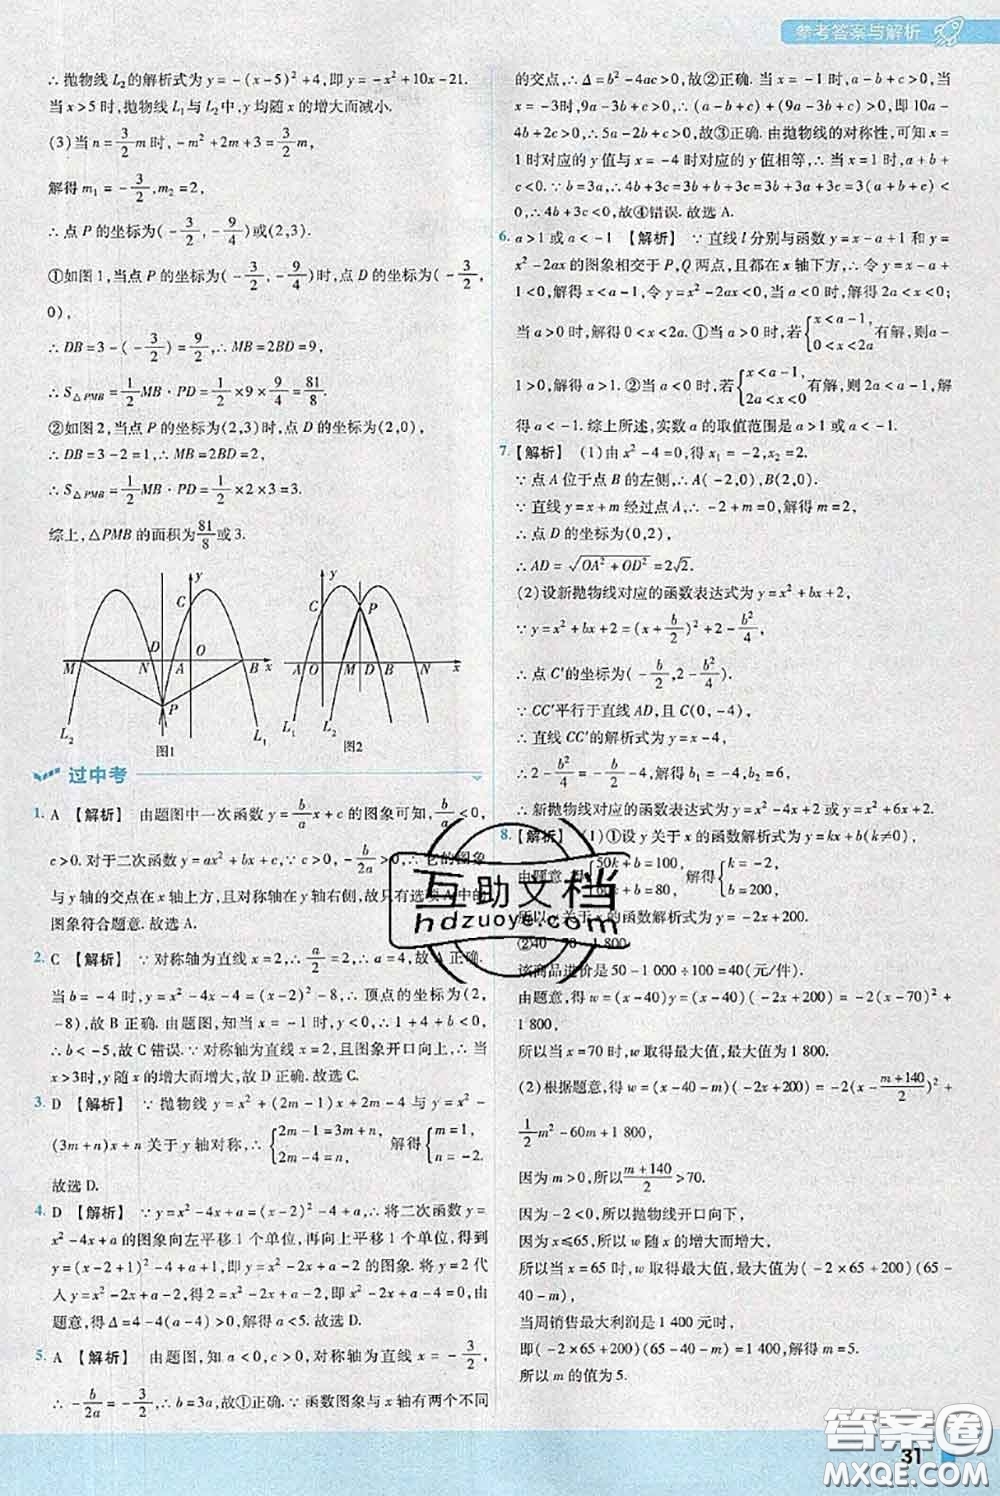 参考答案与解析
∴ 抛物线 L₂的解析式为 y = -(x-5)² + 4,即 y = -x² + 10x - 21.
当 x > 5 时,抛物线 L₁与 L₂中,y 均随 x 的增大而减小.
(3)当 n = 3/2 m 时, -m² + 2m + 3 = 3/2 m,
解得 m₁ = -3/2, m₂ = 2,
∴ 点 P 的坐标为(-3/2, -9/4)或(2,3).
①如图 1,当点 P 的坐标为(-3/2, -9/4)时,点 D 的坐标为(-3/2,
0),
∴ DB = 3 - (-3/2) = 9/2, ∴ MB = 2BD = 9,
∴ S△PMB = 1/2 MB · PD = 1/2 × 9 × 9/4 = 81/8.
②如图 2,当点 P 的坐标为(2,3)时,点 D 的坐标为(2,0),
∴ DB = 3 - 2 = 1, ∴ MB = 2BD = 2,
∴ S△PMB = 1/2 MB · PD = 1/2 × 2 × 3 = 3.
综上, △PMB 的面积为 81/8 或 3.
y
C
D
O
M
N
A
B
x
P
L₂
L₁
图1
y
C
P
A
O
M
D
B
N
x
L₁
L₂
图2
过中考
1. A 【解析】 由题图中一次函数 y = b/a x + c 的图象可知, b/a < 0,
c > 0. 对于二次函数 y = ax² + bx + c, ∵ c > 0, -b/2a > 0, ∴ 它的图象
与 y 轴的交点在 x 轴上方,且对称轴在 y 轴右侧,故只有选项 A 中的
图象符合题意. 故选 A.
2. C 【解析】 ∵ 对称轴为直线 x = 2, ∴ a/2 = 2, ∴ a = 4,故 A 正确.
当 b = -4 时, y = x² - 4x - 4 = (x-2)² - 8, ∴ 顶点的坐标为(2,
-8),故 B 正确. 由题图,知当 x = -1 时, y < 0, ∴ 1 + 4 + b < 0,
∴ b < -5,故 C 错误. ∵ 对称轴为直线 x = 2,且图象开口向上, ∴ 当
x > 3时, y 随 x 的增大而增大,故 D 正确. 故选 C.
3. D 【解析】 ∵ 抛物线 y = x² + (2m-1)x + 2m - 4 与 y = x² -
(3m+n)x + n 关于 y 轴对称, ∴ {2m - 1 = 3m + n, 2m - 4 = n, 解得 {m = 1, n = -2.
故选 D.
4. D 【解析】 ∵ y = x² - 4x + a = (x-2)² - 4 + a, ∴ 将二次函数 y =
x² - 4x + a 的图象向左平移 1 个单位,再向上平移 1 个单位,得到
y = (x-2+1)² - 4 + a + 1,即 y = x² - 2x + a - 2 的图象. 将 y = 2 代
入 y = x² - 2x + a - 2,得 2 = x² - 2x + a - 2,即 x² - 2x + a - 4 = 0,由
题意,得 Δ = 4 - 4(a-4) > 0,解得 a < 5. 故选 D.
5. A 【解析】 由题图,知 a < 0, c > 0,对称轴为直线 x = -3/2,
∴ -b/2a = -3/2, ∴ b = 3a,故①正确. ∵ 函数图象与 x 轴有两个不同
的交点, ∴ Δ = b² - 4ac > 0,故②正确. 当 x = -1 时, a - b + c > 0,当
x = -3时, 9a - 3b + c > 0, ∴ (a-b+c) + (9a-3b+c) > 0,即 10a -
4b + 2c > 0, ∴ 5a - 2b + c > 0,故③正确. 由抛物线的对称性,可知 x =
1 时对应的 y 值与 x = -4 时对应的 y 值相等, ∴ 当 x = 1 时, a + b +
c < 0. ∵ b = 3a, ∴ 4b + 3c = 3b + b + 3c = 3b + 3a + 3c = 3(a+b+c) < 0,
∴ 4b + 3c < 0,故④错误. 故选 A.
6. a > 1 或 a < -1 【解析】 ∵ 直线 l 分别与函数 y = x - a + 1 和 y =
x² - 2ax 的图象相交于 P,Q 两点,且都在 x 轴下方, ∴ 令 y = x - a +
1 < 0,解得 x < a - 1. 令 y = x² - 2ax < 0,当 a < 0 时,解得 2a < x < 0;
当 a > 0 时,解得 0 < x < 2a. ①当 a > 0 时,若 {x < a - 1, 0 < x < 2a 有解,则 a -
1 > 0,解得 a > 1. ②当 a < 0 时,若 {x < a - 1, 2a < x < 0 有解,则 2a < a - 1,解
得 a < -1. 综上所述,实数 a 的取值范围是 a > 1 或 a < -1.
7. 【解析】 (1)由 x² - 4 = 0,得 x₁ = -2, x₂ = 2.
∵ 点 A 位于点 B 的左侧, ∴ A(-2,0), B(2,0).
∵ 直线 y = x + m 经过点 A, ∴ -2 + m = 0, ∴ m = 2,
∴ 点 D 的坐标为(0,2),
∴ AD = √(OA² + OD²) = 2√2.
(2)设新抛物线对应的函数表达式为 y = x² + bx + 2,
∵ y = x² + bx + 2 = (x + b/2)² + 2 - b²/4,
∴ 点 C′的坐标为(-b/2, 2 - b²/4).
∵ CC′平行于直线 AD,且 C(0, -4),
∴ 直线 CC′的解析式为 y = x - 4,
∴ 2 - b²/4 = -b/2 - 4,解得 b₁ = -4, b₂ = 6,
∴ 新抛物线对应的函数表达式为 y = x² - 4x + 2 或 y = x² + 6x + 2.
8. 【解析】 (1)①设 y 关于 x 的函数解析式为 y = kx + b(k≠0),
由题意,得 {50k + b = 100, k + b = 80, 解得 {k = -2, b = 200,
所以 y 关于 x 的函数解析式为 y = -2x + 200.
②40 70 1 800
该商品进价是 50 - 1 000 ÷ 100 = 40(元/件).
由题意,得 w = (x-40)y = (x-40)(-2x+200) = -2(x-70)² +
1 800,
所以当 x = 70 时, w 取得最大值,最大值为 1 800.
(2)根据题意,得 w = (x-40-m)(-2x+200) = -2(x - (m+140)/2)² +
1/2 m² - 60m + 1 800,
因为 m > 0,所以 (m+140)/2 > 70.
因为 -2 < 0,所以抛物线开口向下,
因为 x ≤ 65,所以 w 随 x 的增大而增大,
所以当 x = 65 时, w 取得最大值,最大值为(-2×65+200)(65-
40-m),
当周销售最大利润是 1 400 元时,
即(-2×65+200)(65-40-m) = 1 400,解得 m = 5.
所以 m 的值为 5.
互助文档
hdzuoye.com
答案圈
MXQE.COM
31